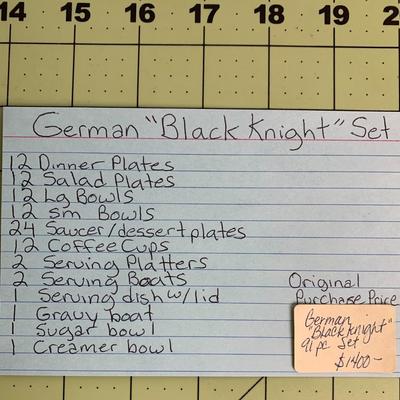 14 15 16 17 18 19 2
German "Black Knight" Set
12 Dinner Plates
12 Salad Plates
12 Lg Bowls
12 sm Bowls
24 Saucer/dessert plates
12 Coffee Cups
2 Serving Platters
2 Serving Boats
1 Serving dish w/lid
1 Gravy boat
1 Sugar bowl
1 Creamer bowl
Original
Purchase Price
German
"Black Knight"
91 pc Set
$1400-